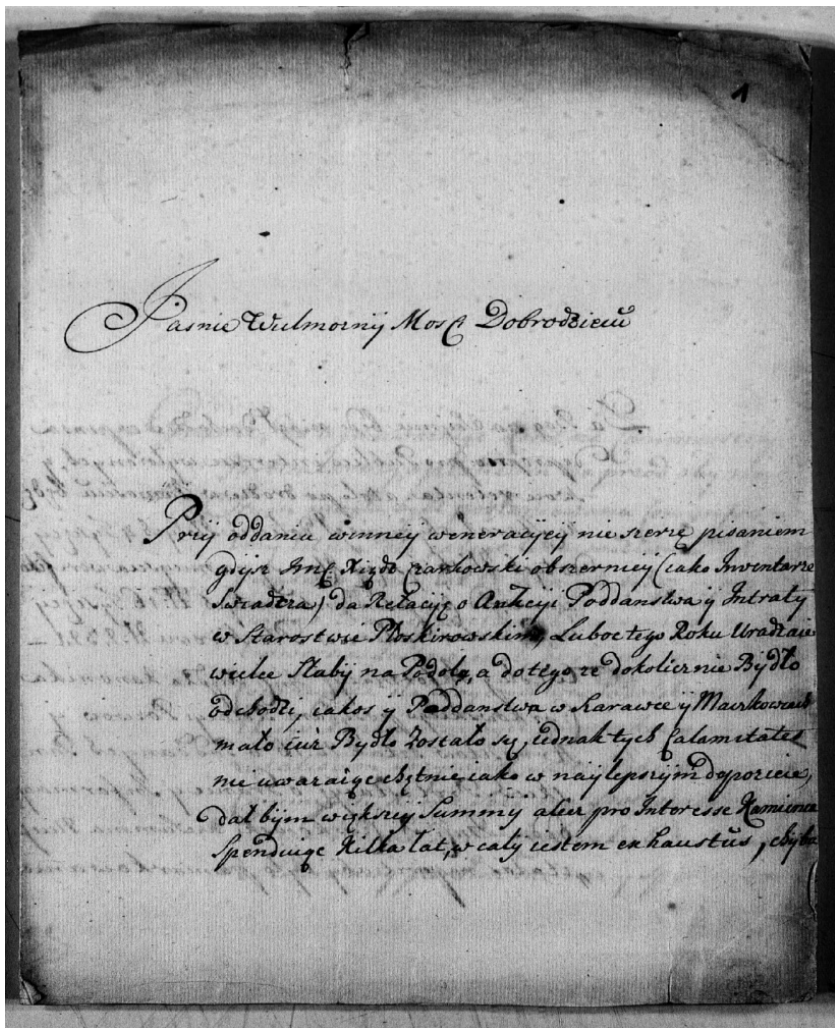 1
Jasnie Wielmozny Mosci Dobrodzieiu
Przy oddaniu winney weneracyey nie szerze pisaniem
gdysz Jmć Xiądz Czarkowski obszerniey (iako Inwentarze
Swiadczą) da Relacyę o Aukcyi Poddanstwa y Intraty
w Starostwie Płoskirowskim, Luboc tego Roku Uradzaie
wielce Słaby na Podolu, a do tego ze dokolicznie Bydło
odchodzi, iakos y Poddanstwa w Szarawce y Maczkowcach
mało iuz Bydło zostało się, iednak tych Calamitates
nie uwazaiąc chętnie iako w naylepszym depozicie,
dał bym większey Summy alez pro Interesse Kamienca
Spenduiąc Kilka lat, w cały iestem exhaustus, chyba